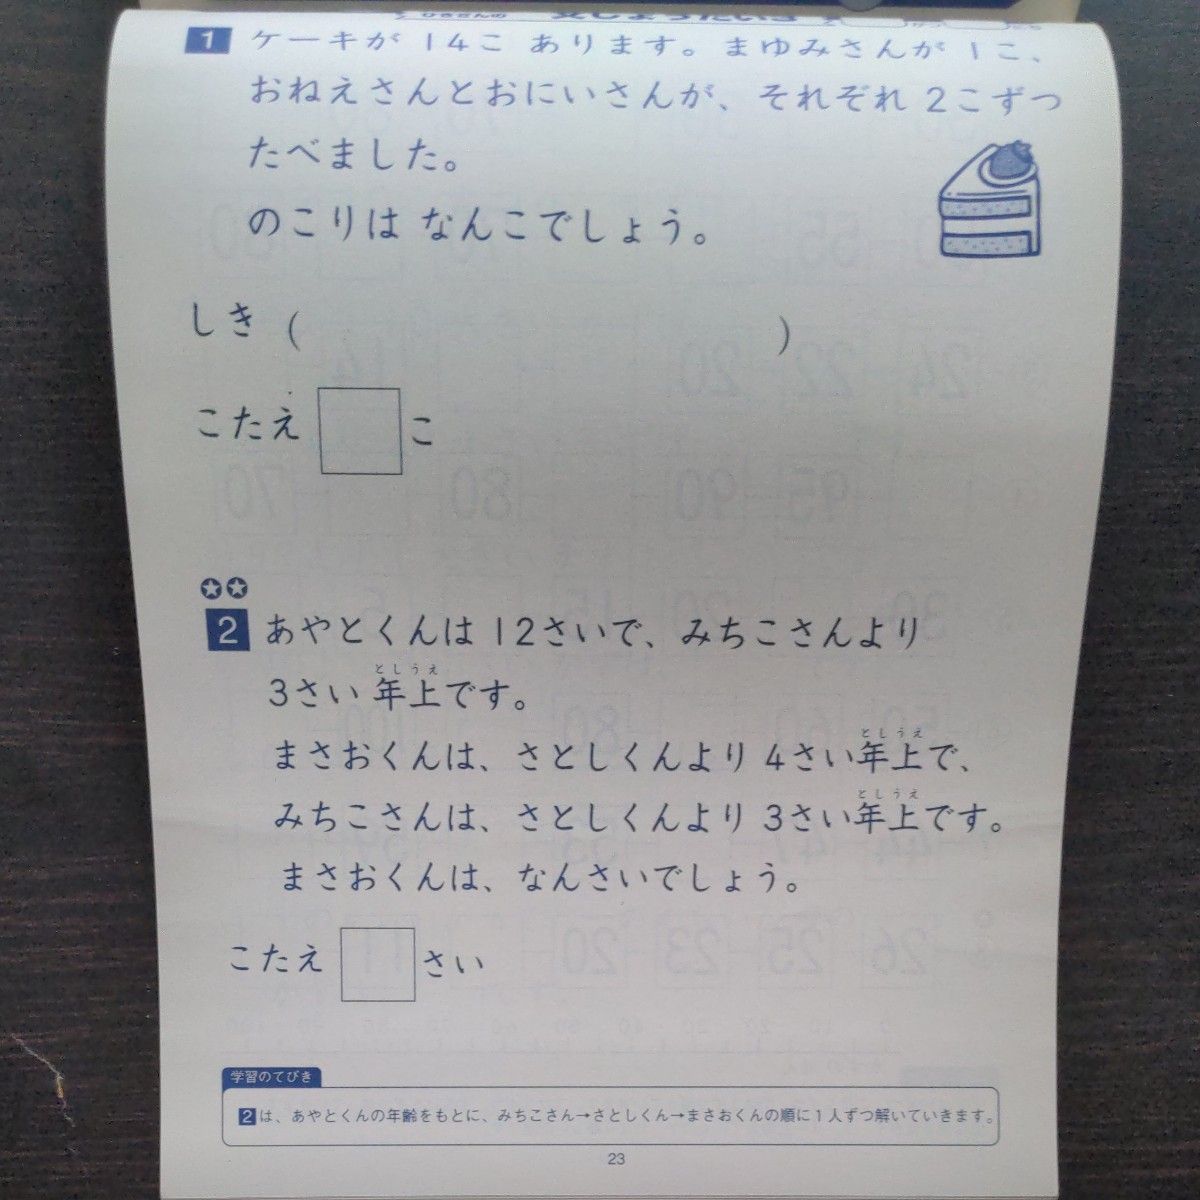 1 ケーキが 14こ あります。まゆみさんが 1こ、
おねえさんとおにいさんが、それぞれ 2こずつ
たべました。
のこりは なんこでしょう。
しき ( )
こたえ こ
2 あやとくんは 12さいで、みちこさんより
としうえ
3さい 年上です。
としうえ
まさおくんは、さとしくんより 4さい年上で、
としうえ
みちこさんは、さとしくんより 3さい年上です。
まさおくんは、なんさいでしょう。
こたえ さい
学習のてびき
2は、あやとくんの年齢をもとに、みちこさん→さとしくん→まさおくんの順に1人ずつ解いていきます。
23